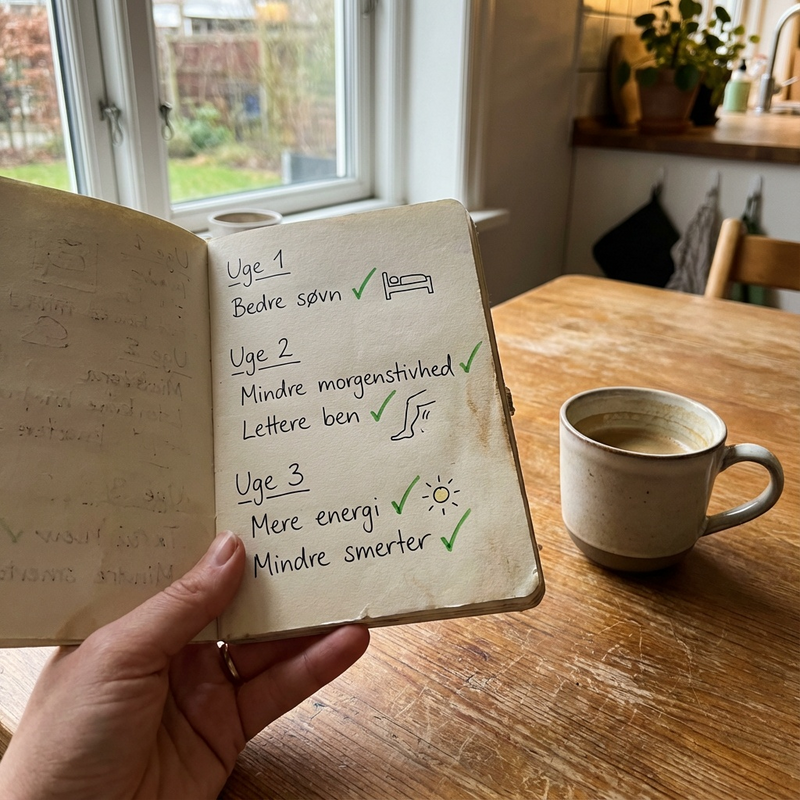 Uge 1
Bedre søvn ✓
Uge 2
Mindre morgenstivhed ✓
Lettere ben ✓
Uge 3
Mere energi ✓
Mindre smerter ✓